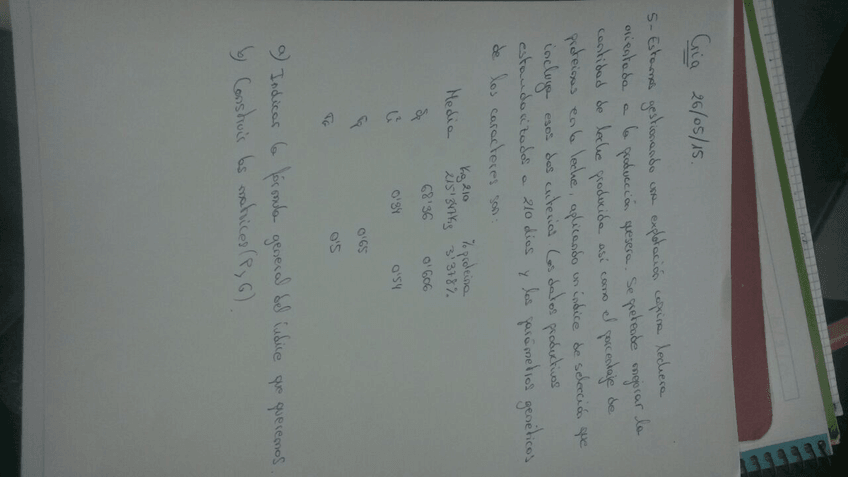 Cría 26/05/15.
5- Estamos gestionando una explotación caprina lechera
orientada a la producción quesera. Se pretende mejorar la
cantidad de leche producida así como el porcentaje de
proteínas en la leche, aplicando un índice de selección que
incluya esos dos criterios. Los datos productivos
estandarizados a 210 días y los parámetros genéticos
de los caracteres son:
Kg 210 % proteina
Media 215'347Kg 3'378%
68'36 0'606
h² 0'34 0'54
0'65
0'5
a) Indicar la fórmula general del índice que queremos
b) Construir las matrices (P y G)